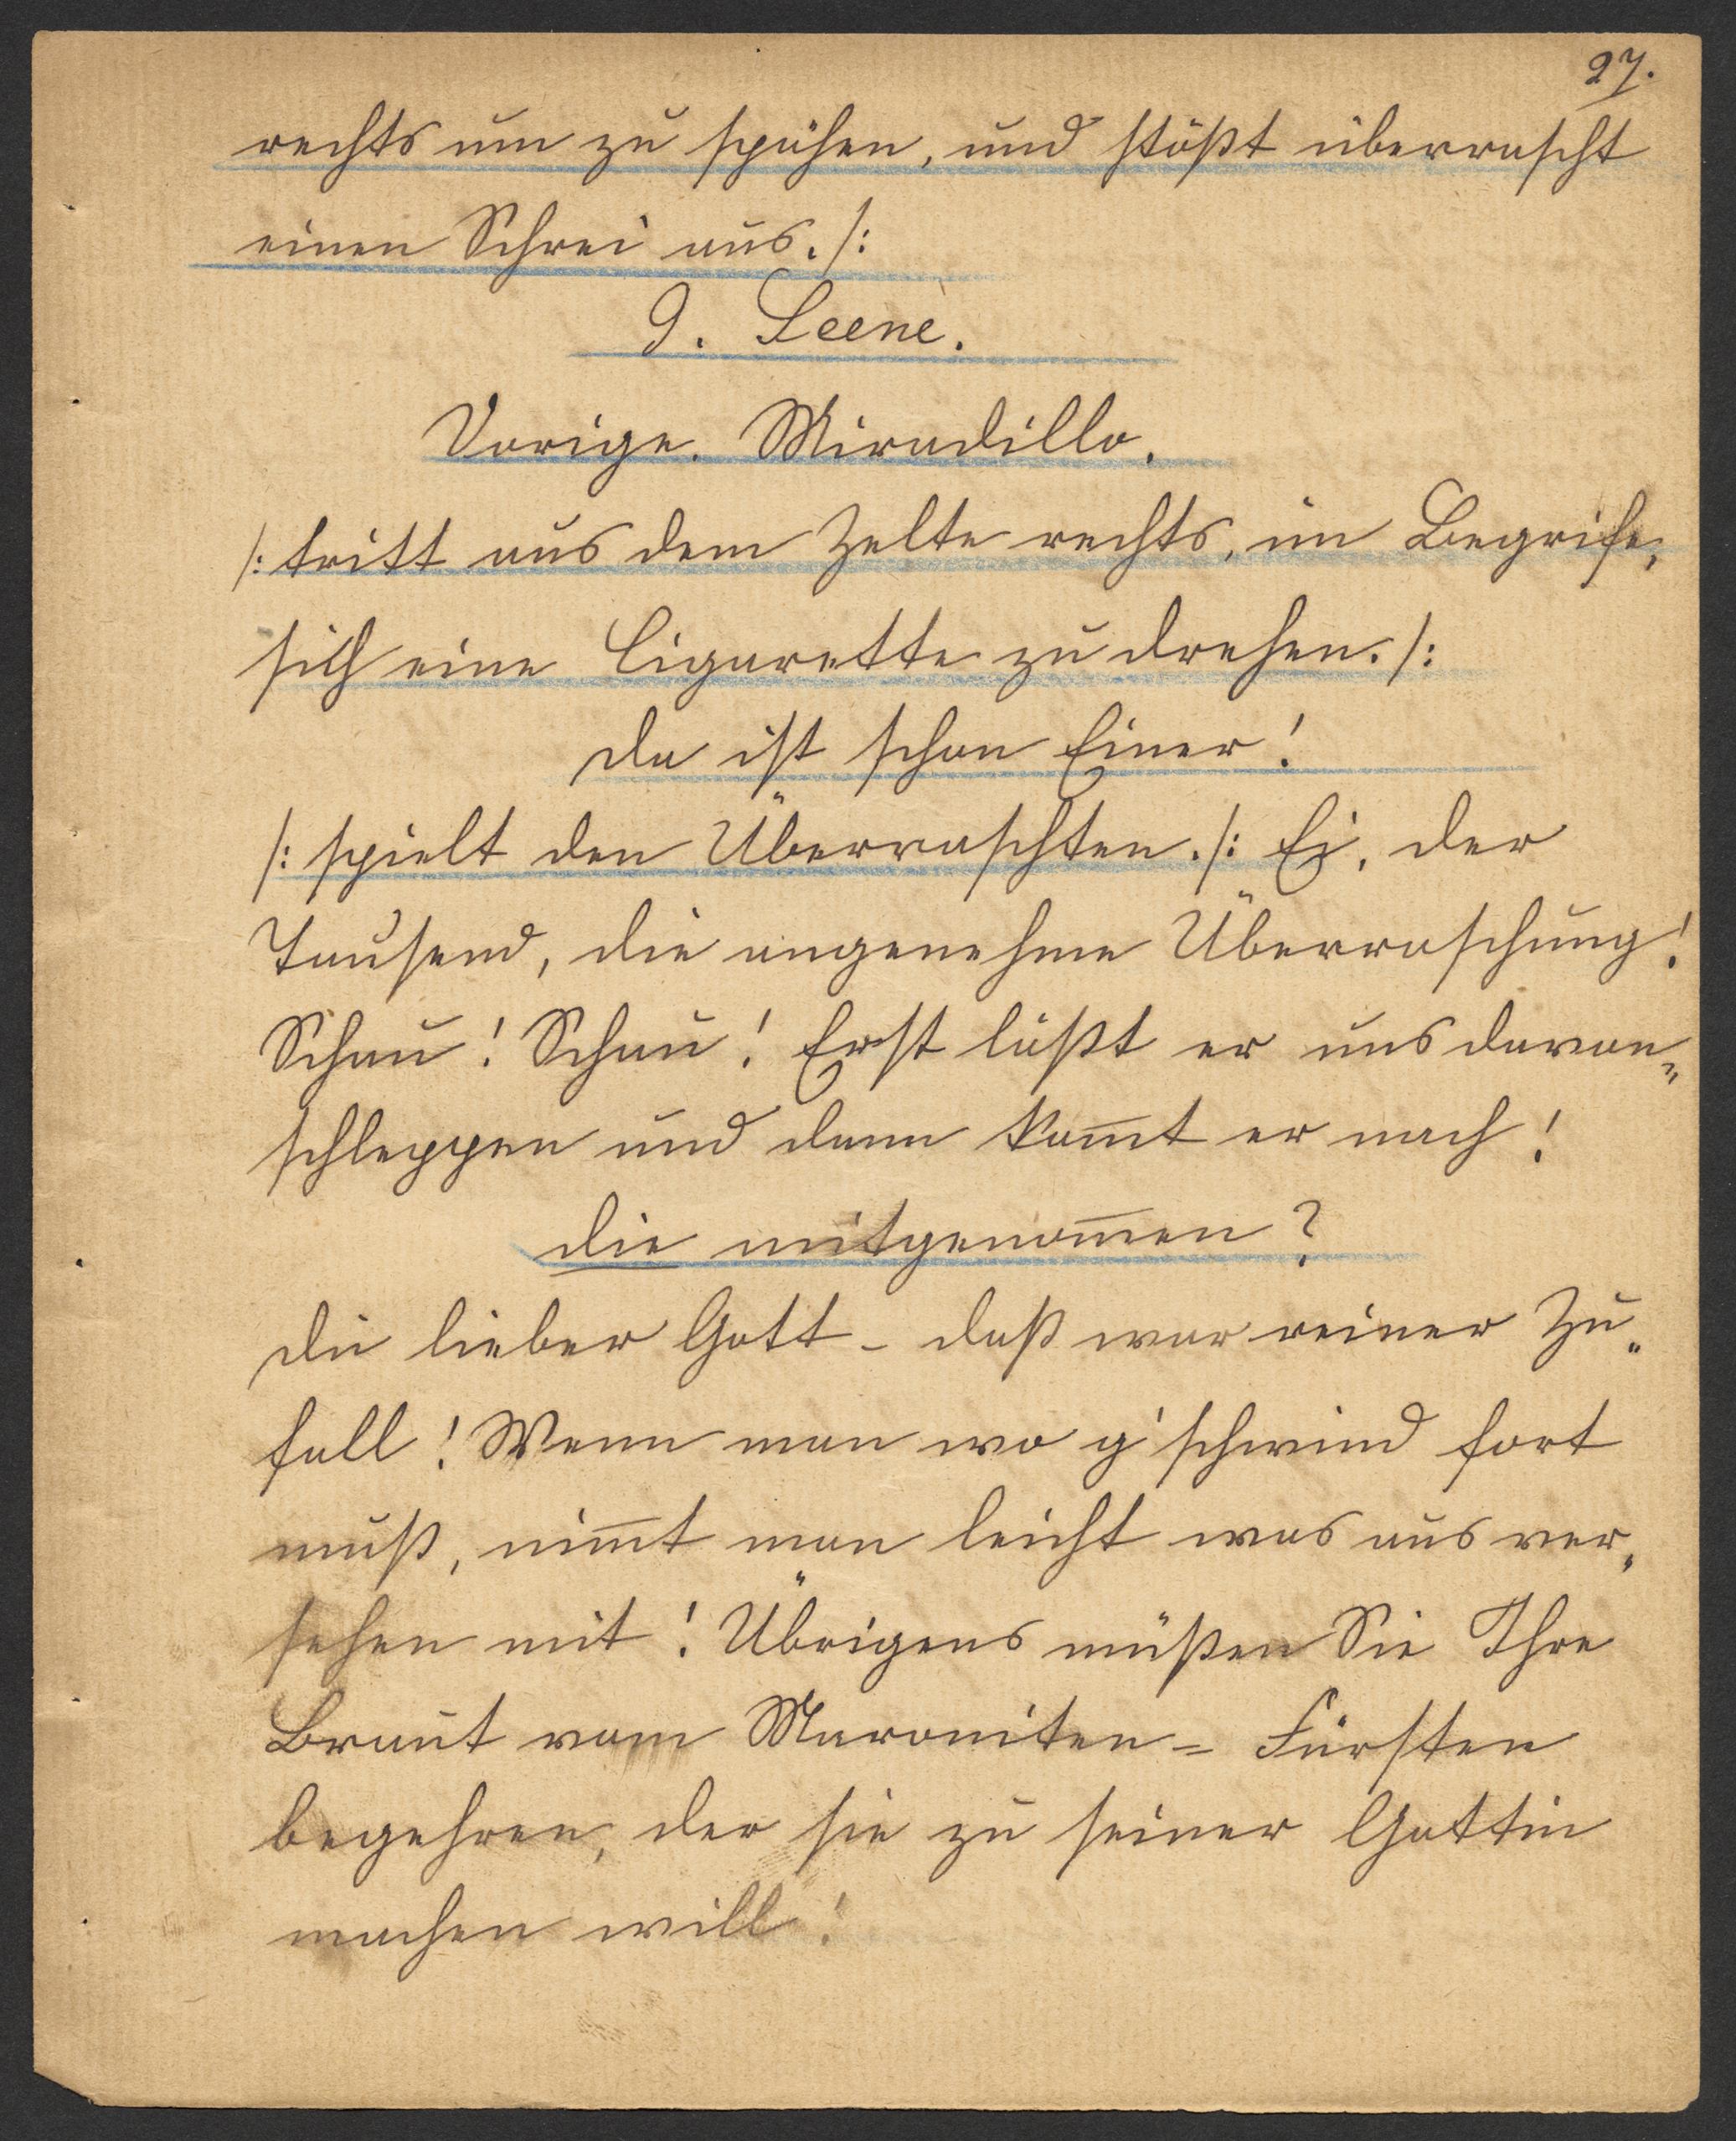 27.
rechts um zu spähen, und stößt überrascht
einen Schrei aus. /:
9. Scene.
Vorige. Miradillo.
/: tritt aus dem Zelte rechts, im Begrife,
sich eine Cigarette zu drehen. /:
Da ist schon Einer!
/: spielt den Überraschten. /: Ei, der
Tausend, die angenehme Überraschung!
Schau! Schau! Erst läßt er uns davon„
schleppen und dann kom̄t er nach!
die mitgenom̄en?
Du lieber Gott – daß war reiner Zu„
fall! Wenn man wo g'schwind fort
muß, nim̄t man leicht was aus ver„
sehen mit! Übrigens müßen Sie Ihre
Braut vom Maroniten = Fürsten
begehren, der sie zu seiner Gattin
machen will!